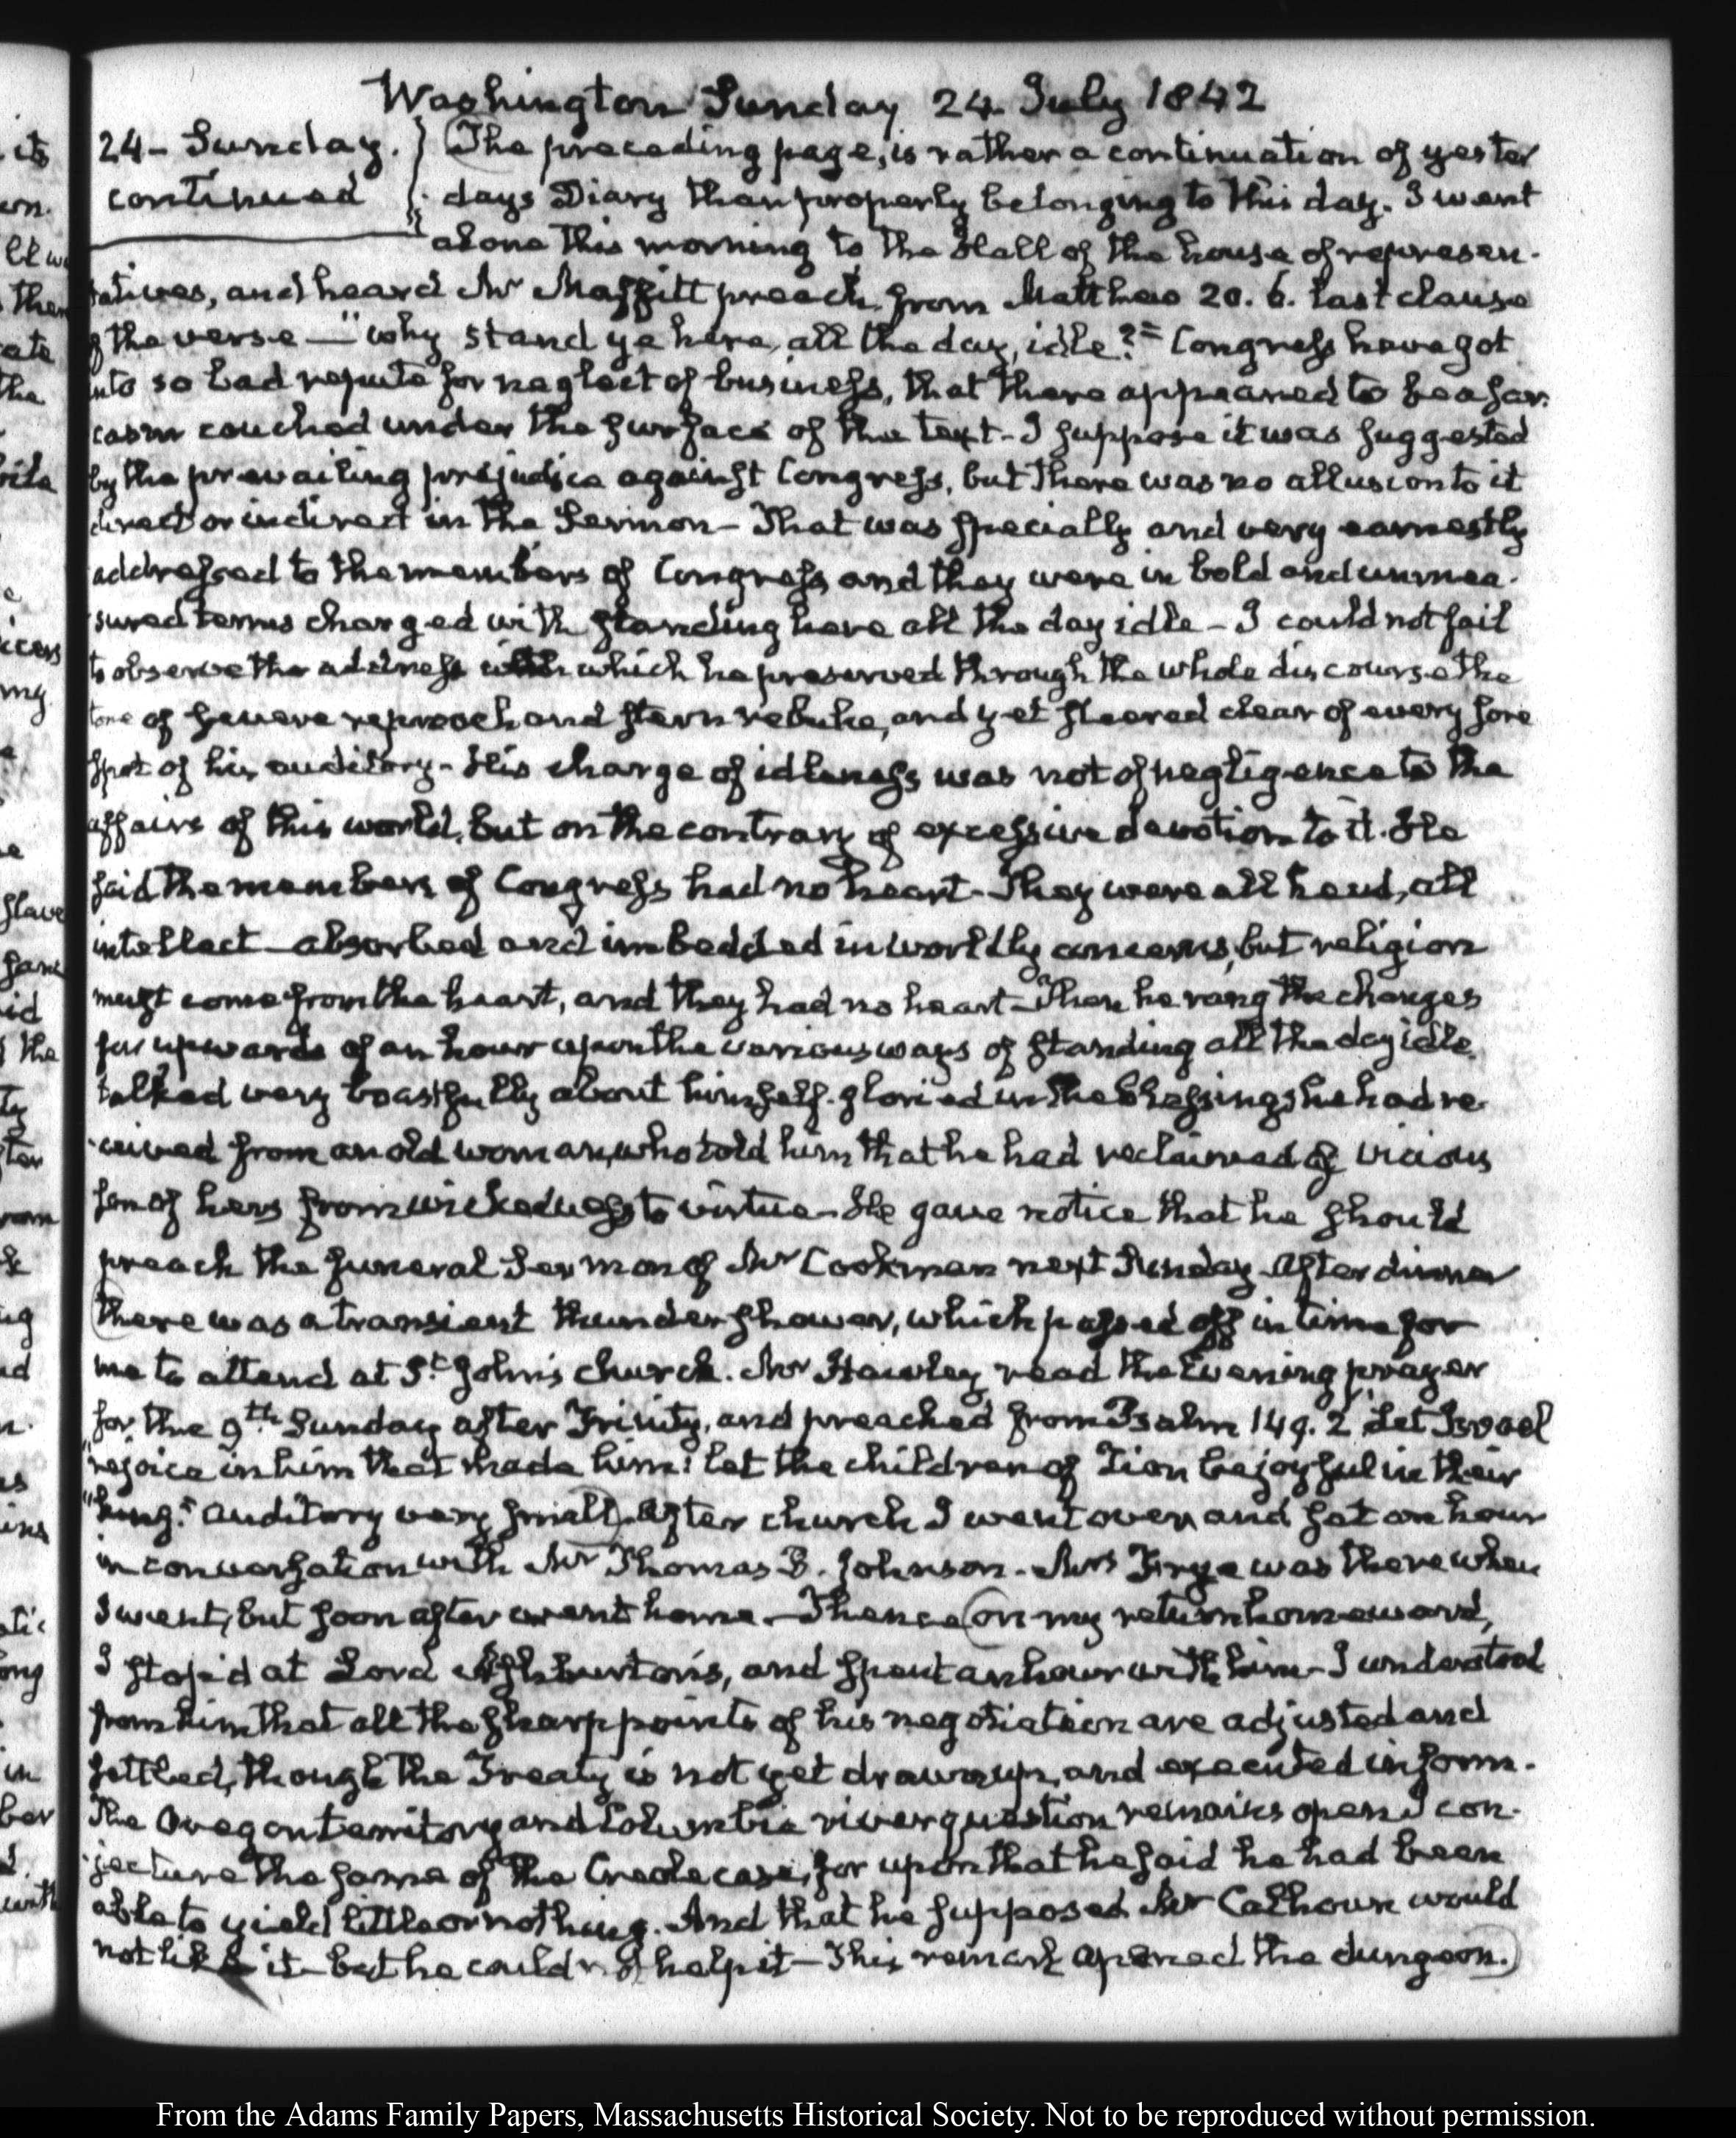 Washington Sunday 24 July 1842
24 - Sunday. The preceding page, is rather a continuation of yester
continued days Diary than properly belonging to this day. I went
alone this morning to the Hall of the house of represen-
tatives, and heard Mr Maffitt preach from Matthew 20. 6. last clause
of the verse — "why stand ye here, all the day, idle?" Congress have got
into so bad repute for neglect of business, that there appeared to be a sar-
casm couched under the surface of the text - I suppose it was suggested
by the prevailing prejudice against Congress, but there was no allusion to it
direct or indirect in the Sermon - That was specially and very earnestly
addressed to the members of Congress and they were in bold and unmea-
sured terms charged with standing here all the day idle - I could not fail
to observe the address with which he preserved through the whole discourse the
tone of severe reproach and stern rebuke, and yet steered clear of every sore
spot of his auditory - His charge of idleness was not of negligence to the
affairs of this world, but on the contrary of excessive devotion to it. He
said the members of Congress had no heart - They were all head, all
intellect absorbed and imbedded in worldly concerns, but religion
must come from the heart, and they had no heart - Then he rang the changes
for upwards of an hour upon the various ways of standing all the day idle.
talked very boastfully about himself. gloried in the blessings he had re-
ceived from an old woman, who told him that he had reclaimed a vicious
son of hers from wickedness to virtue - He gave notice that he should
preach the funeral Sermon of Mr Cookman next Sunday. After dinner
there was a transient thunder shower, which passed off in time for
me to attend at St. John's church. Mr Hawley read the Evening prayer
for the 9th Sunday after Trinity, and preached from Psalm 149. 2 "Let Israel
"rejoice in him that made him: let the children of Zion be joyful in their
"king." auditory very small. After church I went over and sat an hour
in conversation with Mr Thomas B. Johnson. Mrs Frye was there when
I went, but soon after went home - Thence (on my return homeward,
I stop'd at Lord Ashburton's, and spent an hour with him - I understood
from him that all the sharp points of his negotiation are adjusted and
settled, though the Treaty is not yet drawn up, and executed in form.
The Oregon territory and Columbia river question remains open I con-
jecture the same of the Creole case, for upon that he said he had been
able to yield little or nothing. And that he supposed Mr Calhoun would
not like it - but he could not help it - This remark opened the dungeon.)
From the Adams Family Papers, Massachusetts Historical Society. Not to be reproduced without permission.